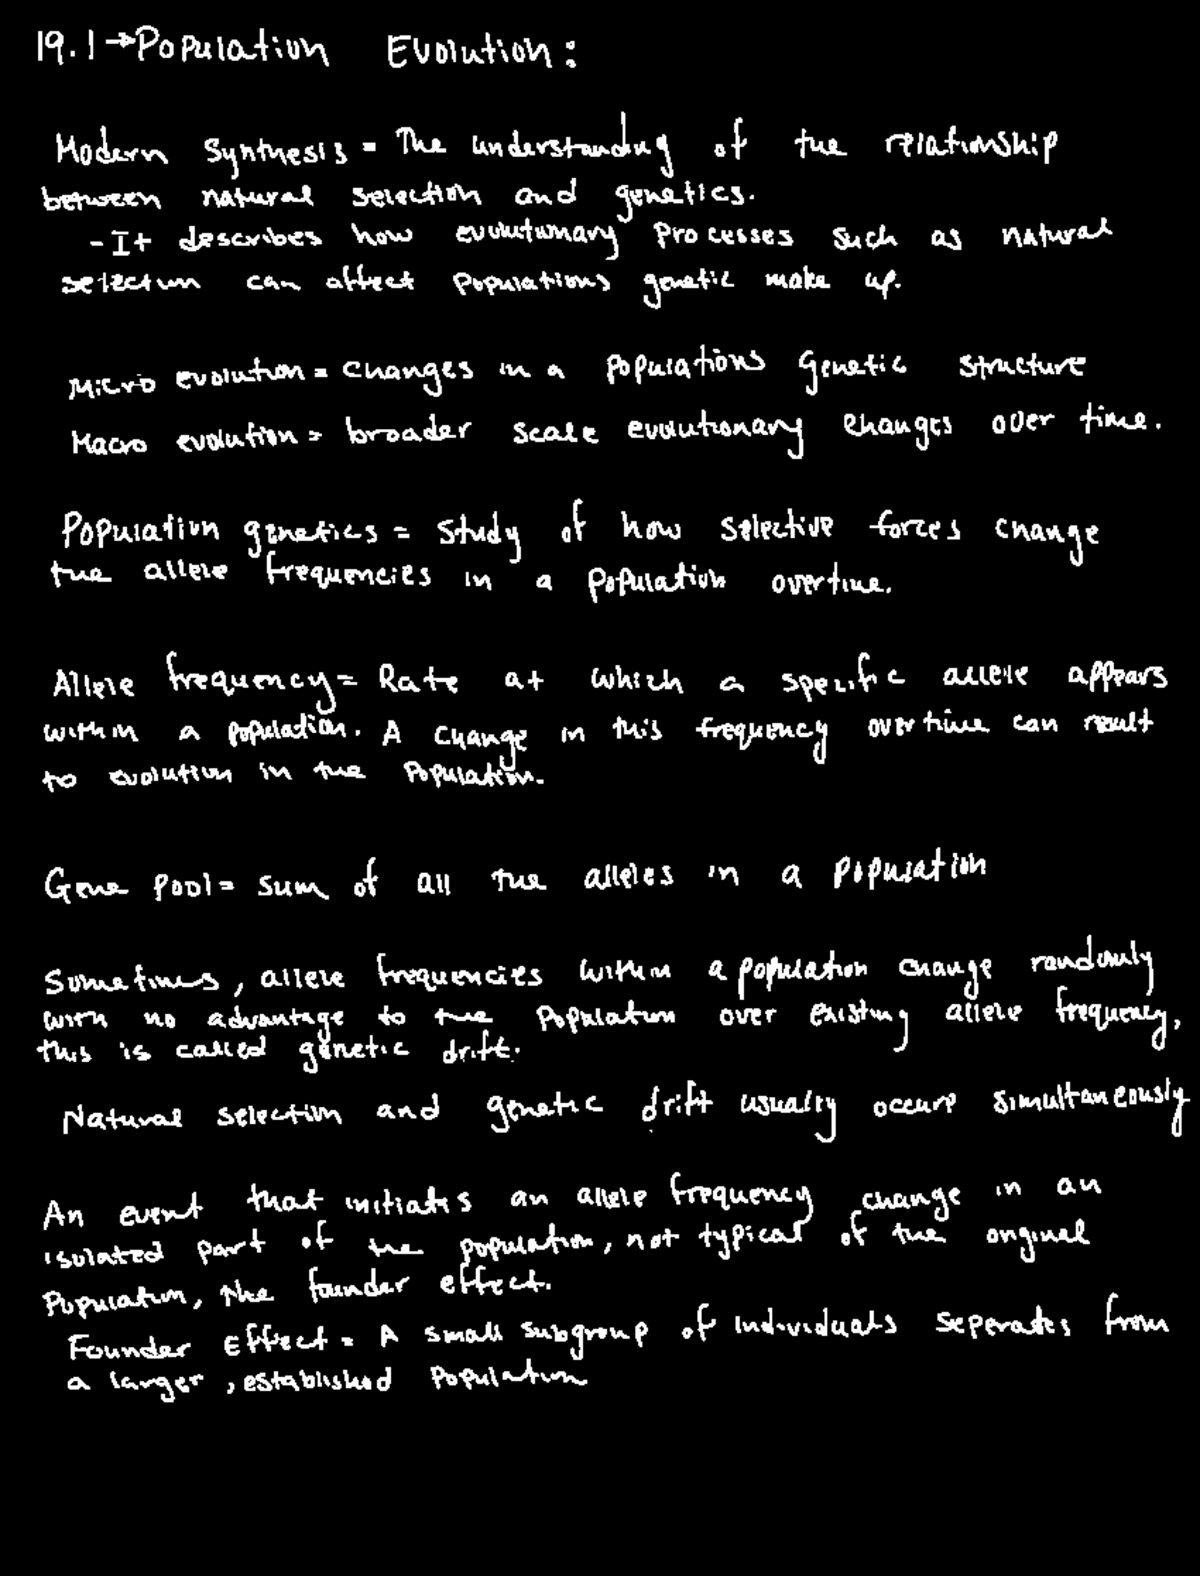 19.1→Population Evolution:
Modern Synthesis = The understanding of the relationship
between natural selection and genetics.
- It describes how evolutionary processes such as natural
selection can affect populations genetic make up.
Micro evolution = changes in a populations genetic structure
Macro evolution = broader scale evolutionary changes over time.
Population genetics = study of how selective forces change
the allele frequencies in a population overtime.
Allele frequency = Rate at which a specific allele appears
within a population. A change in this frequency overtime can result
to evolution in the population.
Gene pool = sum of all the alleles in a population
Sometimes, allele frequencies within a population change randomly
with no advantage to the population over existing allele frequency,
this is called genetic drift.
Natural selection and genetic drift usually occurs simultaneously
An event that initiates an allele frequency change in an
isolated part of the population, not typical of the original
population, the founder effect.
Founder Effect = A small subgroup of individuals seperates from
a larger, established population